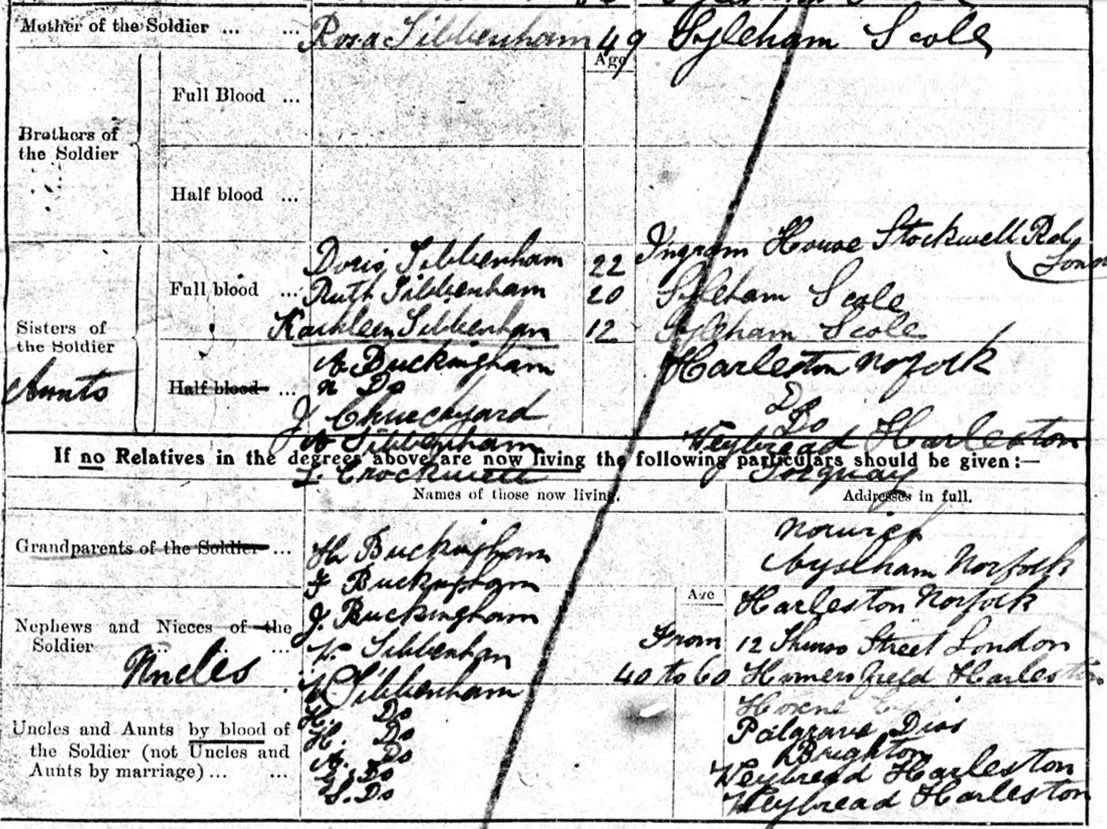 Mother of the Soldier ... ... Rosa Sibbenham 49 Syleham Scole
Age
Brothers of the Soldier
Full Blood ...
Half blood ...
Sisters of the Soldier
Full blood ... Doris Sibbenham 22 Ingram House Stockwell Rd
Ruth Sibbenham 20 Syleham Scole
Kathleen Sibbenham 12 Syleham Scole
Aunts
Half blood ... A. Buckingham Harleston Norfolk
n Do Do
J Churchyard Do
A Sibbenham Weybread Harleston
If no Relatives in the degrees above are now living the following particulars should be given:—
L. Crockwell Torquay
Names of those now living. Addresses in full.
Grandparents of the Soldier ... H. Buckingham Norwich
F Buckingham Aylsham Norfolk
Age
Nephews and Nieces of the Soldier ... ... ... J. Buckingham Harleston Norfolk
Uncles
W. Sibbenham From 12 Street London
W Sibbenham 40 to 60 Homersfield Harleston
Uncles and Aunts by blood of the Soldier (not Uncles and Aunts by marriage) ... ...
H. Do
H. Do Palgrave Diss
A. Do Brighton
G. Do Weybread Harleston
S. Do Weybread Harleston